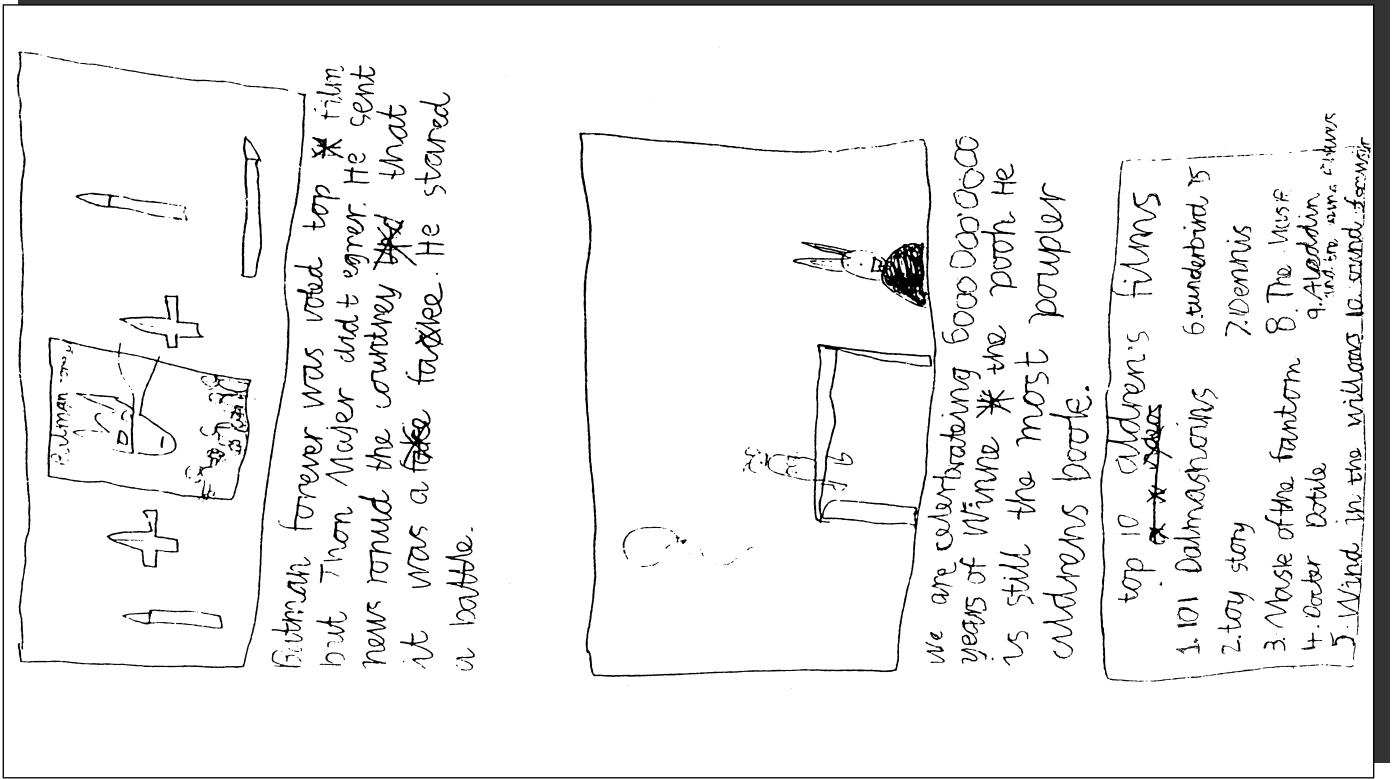 Batman forever was voted top film
but Thon Majer didt egrer. He sent
news round the countrey that
it was a facke. He stared
a battle.
We are celerbrateing 6000000000000
years of Winne the pooh He
is still the most poupler
cildrens book.
top 10 cildren's films
1. 101 Dalmashoins
2. toy story
3. Maske of the fantom
4. Docter Dotile
5. Wind in the willows
6. tunderbird 5
7. Dennis
8. The
9. Aladdin
10